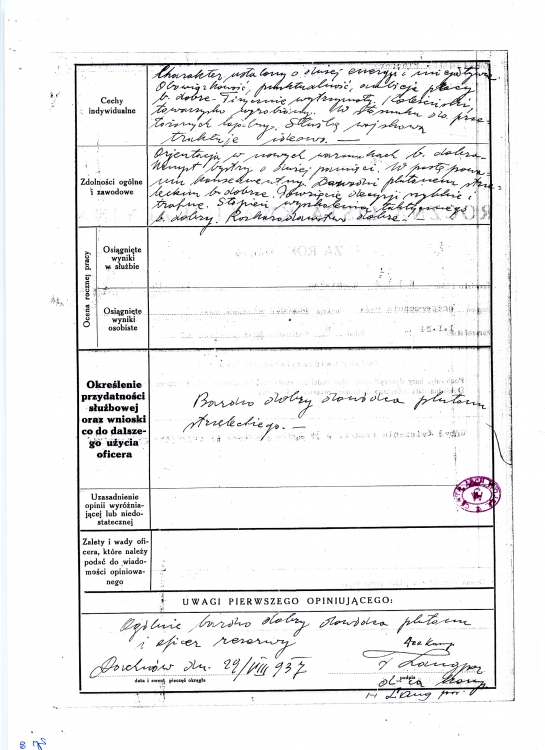 Cechy
indywidualne
Charakter ustalony o dużej energji i inicjatywie
Obowiązkowość, punktualność, ambicja pracy
b. dobre. Fizycznie wytrzymały. Koleżeński,
towarzysko wyrobiony. W stosunku do prze-
łożonych lojalny. Służbę wojskową
traktuje ideowo. —
Zdolności ogólne
i zawodowe
Orjentacja w nowych warunkach b. dobra.
Umysł bystry o dużej pamięci. W postępowa-
niu konsekwentny. Dowodzi plutonem strze-
leckim b. dobrze. Powzięcie decyzji szybkie i
trafne. Stopień wyszkolenia taktycznego
b. dobry. Rozkazodawstwo dobre.
Ocena rocznej pracy
Osiągnięte
wyniki
w służbie
Osiągnięte
wyniki
osobiste
Określenie
przydatności
służbowej
oraz wnioski
co do dalsze-
go użycia
oficera
Bardzo dobry dowódca plutonu
strzeleckiego. —
Uzasadnienie
opinii wyróżnia-
jącej lub niedo-
statecznej
Zalety i wady ofi-
cera, które należy
podać do wiado-
mości opiniowa-
nego
UWAGI PIERWSZEGO OPINIUJĄCEGO:
Ogólnie bardzo dobry dowódca plutonu
i oficer rezerwy
dn. 29/VIII 937
data i ewent. pieczęć okrągła
podpis
d-ca komp.
por.